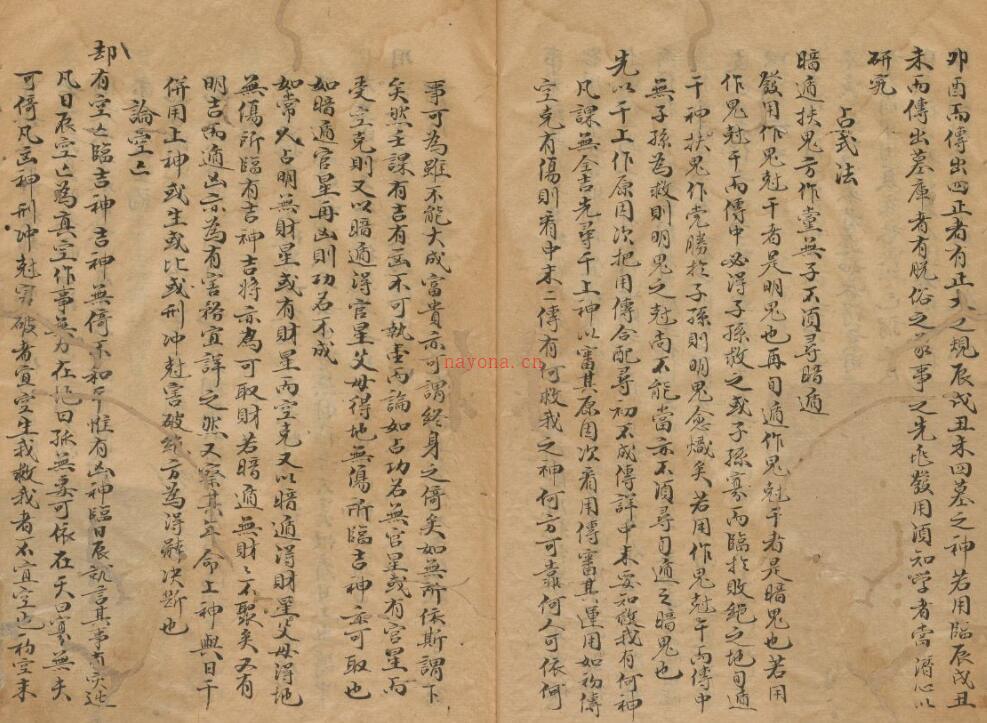 卯酉而傳出四正者有正大之規辰戌丑未四墓之神若用臨辰戌丑
未而傳出墓庫者有脫俗之象事之先兆發用須知学者當潛心以
研究
占式法
暗遁扶鬼方作黨無子不須尋暗遁
發用作鬼尅干者是明鬼也再旬遁作鬼尅干者是暗鬼也若用
作鬼尅干而傳中必得子孫救之或子孫寡而臨於敗絕之地旬遁
干神扶鬼作党勝於子孫則明鬼愈熾矣若用作鬼尅干而傳中
無子孫為救則明鬼之尅尚不能當亦不須尋旬遁之暗鬼也
先以干上作原因次把用傳合配尋初不成傳詳中末要知救我有何神
凡課無全吉先尋干上神以審其原因次看用傳審其運用如初傳
空克有傷則看中末二傳有何救我之神何方可靠何人可依何
事可為雖不能大成富貴亦可謂終身之倚矣如無所依斯謂下
矣然壬課有吉有凶不可執一而論如占功名無官星或有官星而
受空克則又以暗遁得官星父母得地無傷所臨吉神亦可取也
如暗遁官星再凶則功名不成
如常人占明無財星或有財星而空克又以暗遁得財星父母得地
無傷所臨有吉神吉將亦為可取財若暗遁無財之不聚矣又有
明吉而遁凶亦為有害務宜詳之然又察其年命上神與日干
併用上神或生或比或刑冲尅害破絕方為得訣决断也
論空亡
却有空亡臨吉神吉神無倚不和平惟有凶神臨日辰說言其事有災迍
凡日辰空亡為真空作事無力在地曰孤無妻可依在天曰寡無夫
可倚凡凶神刑冲尅害破者宜空生我救我者不宜空也初空未
nayona.cn